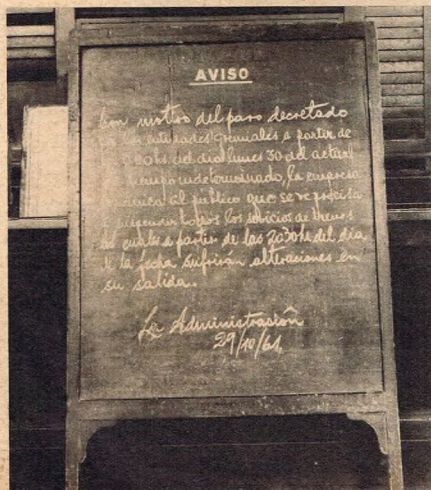 AVISO
Con motivo del paro decretado
entidades gremiales a partir de
hs. del día lunes 30 del actual
tiempo indeterminado, la empresa
comunica al público que se ve precisada
a suspender todos los servicios de trenes
los cuales a partir de las hs. del día
de la fecha sufrirán alteraciones en
su salida.
La Administración
29/10/61